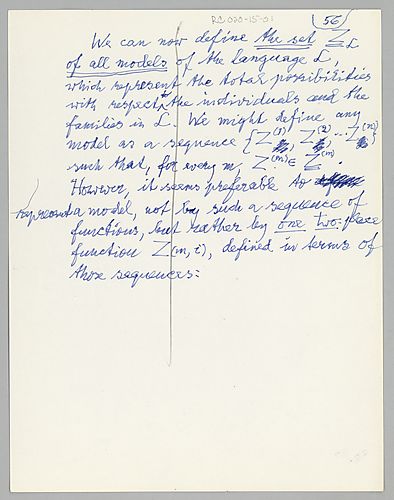 RC 020-15-01
56
We can now define the set Z_L
of all models of the language L,
which represent the total possibilities
with respect to the individuals and the
families in L. We might define any
model as a sequence {Z^(1), Z^(2), ... Z^(n)}
such that, for every m, Z^(m) ∈ Z^(m).
However, it seems preferable to
represent a model, not by such a sequence of
functions, but rather by one two-place
function Z(m,i), defined in terms of
those sequences: